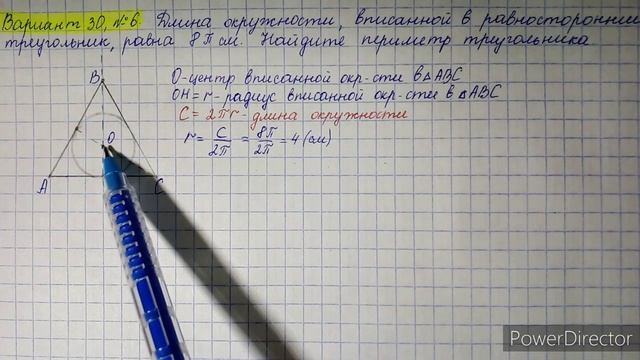 Вариант 30, №6. Длина окружности, вписанной в равносторонний
треугольник, равна 8π см. Найдите периметр треугольника.
O-центр вписанной окр-сти в △ABC
OH = r - радиус вписанной окр-сти в △ABC
C = 2πr - длина окружности
r = C/2π = 8π/2π = 4 (см)
B
O
A C
PowerDirector